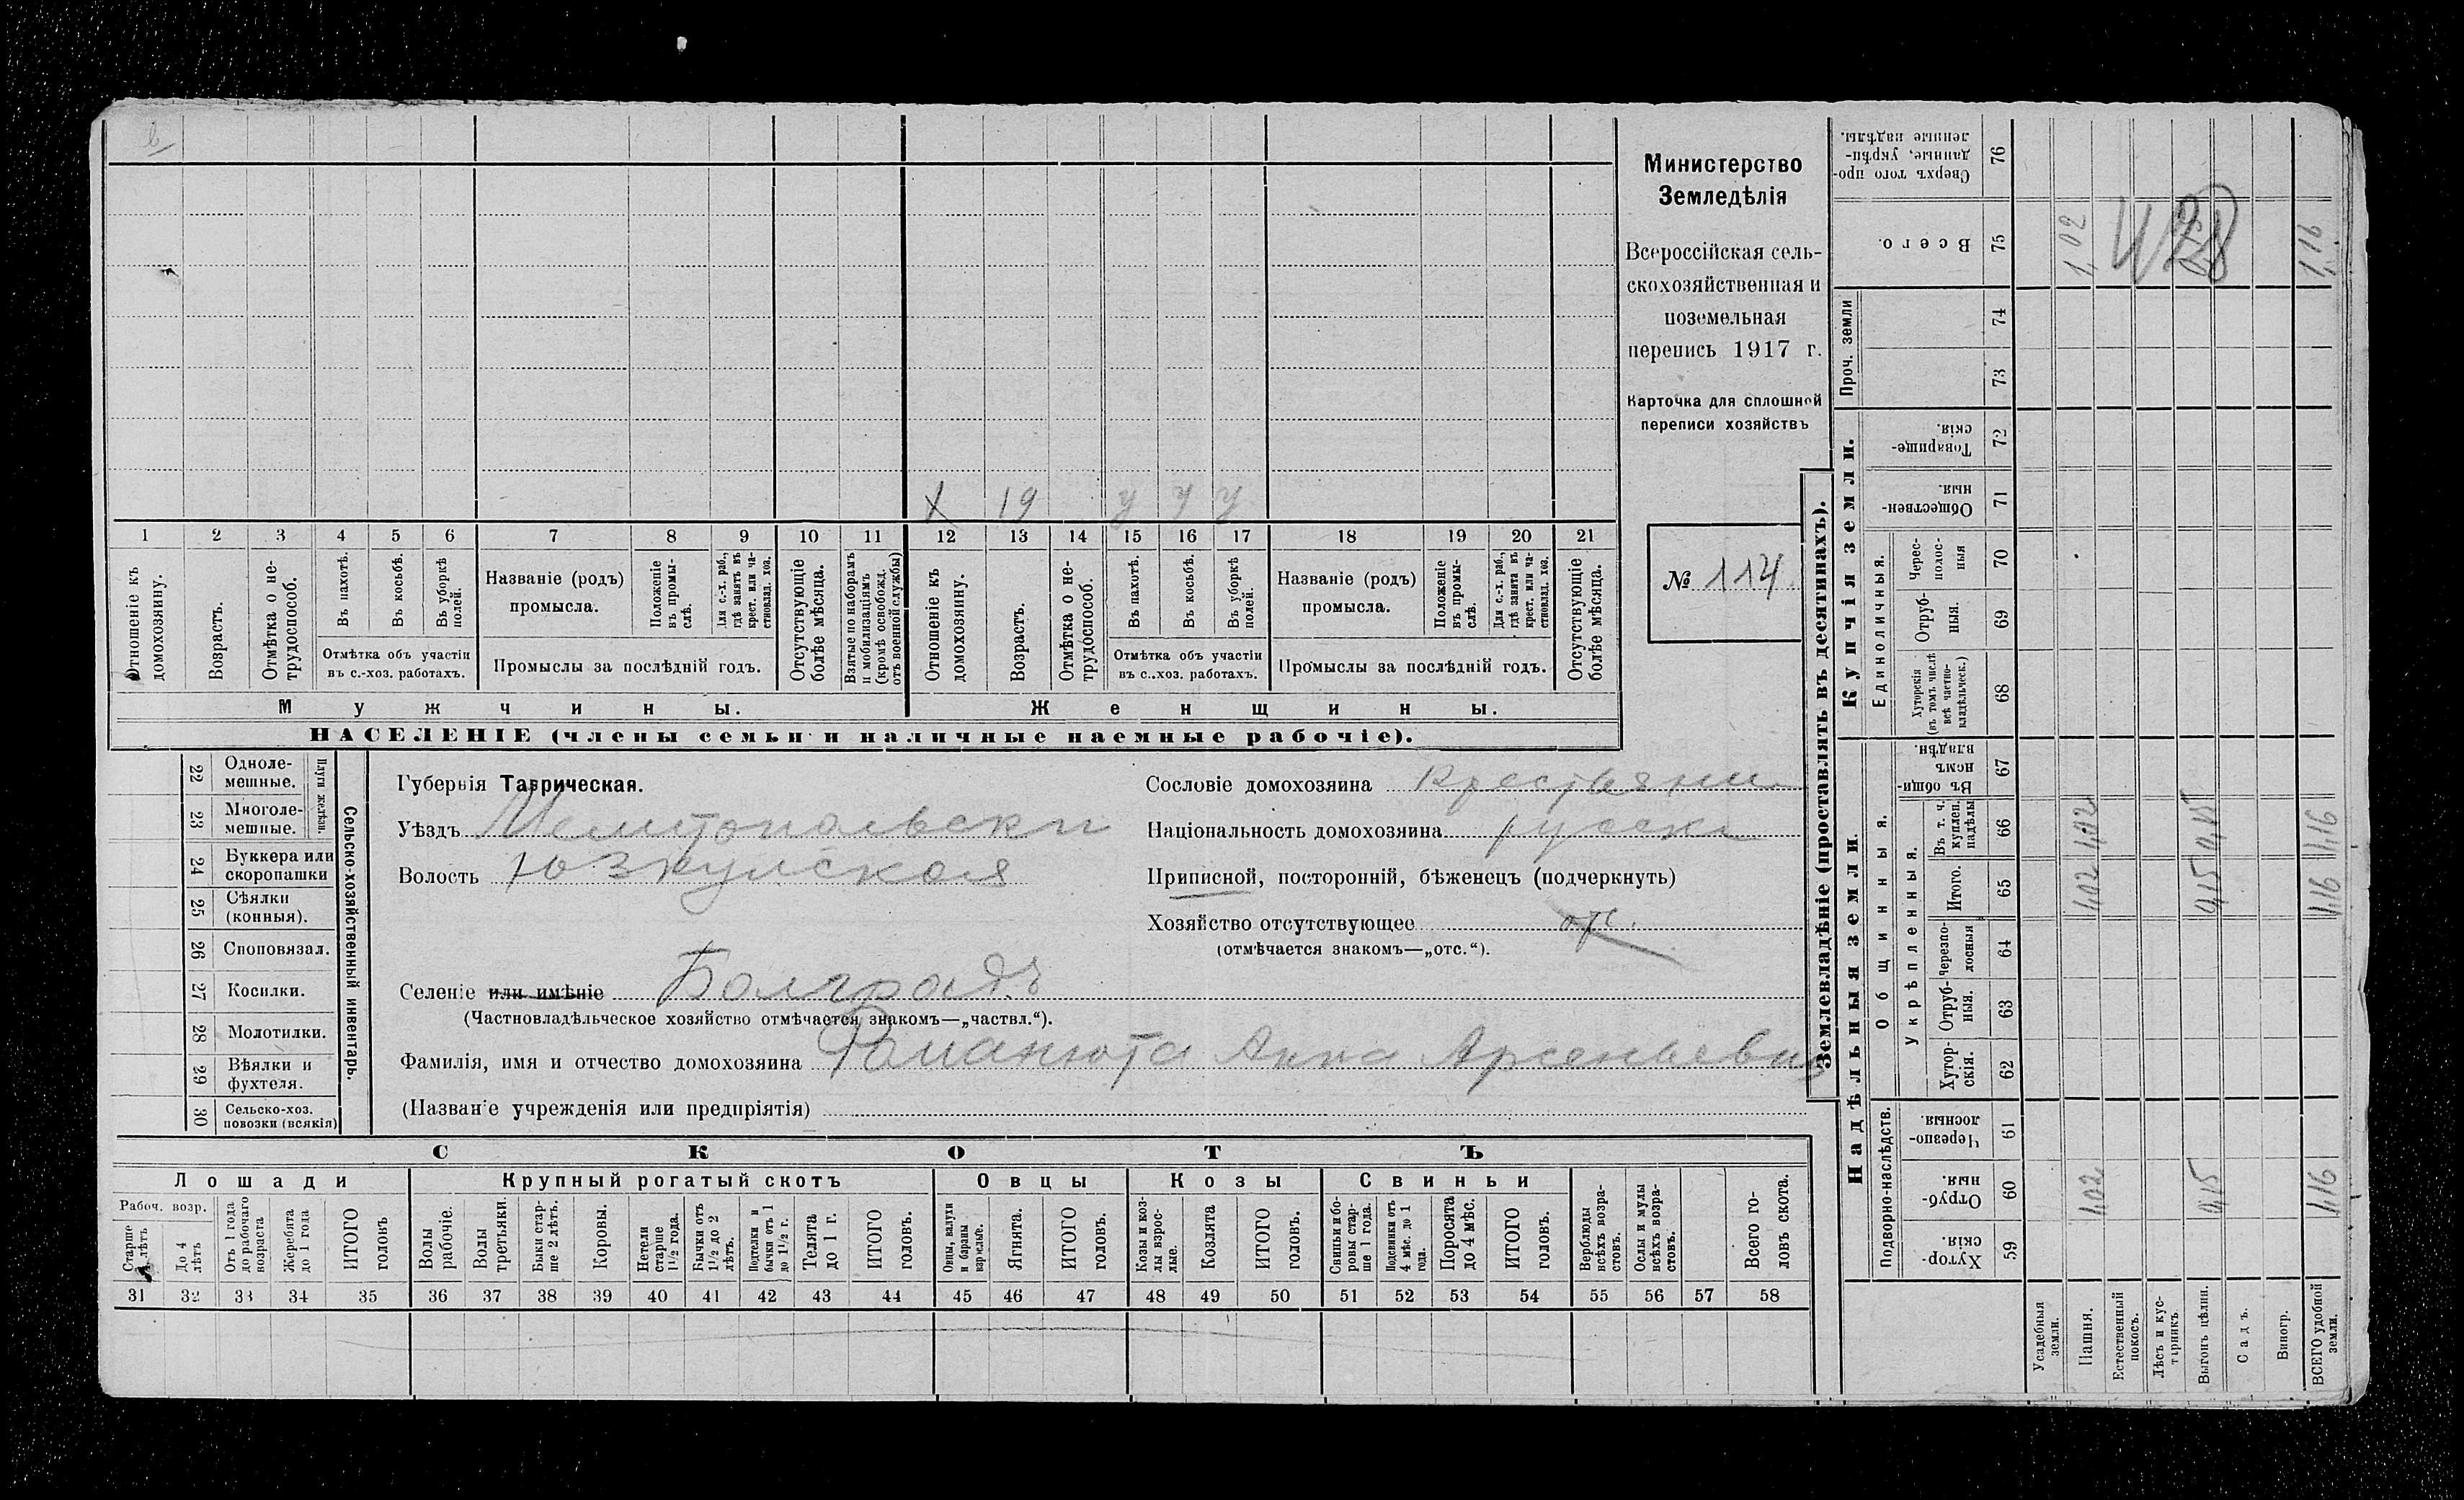 Министерство
Земледѣлія
Всероссійская сель-
скохозяйственная и
поземельная
перепись 1917 г.
Карточка для сплошной
переписи хозяйствъ
№ 114
X 19 у у у
1 2 3 4 5 6 7 8 9 10 11 12 13 14 15 16 17 18 19 20 21
Отношеніе къ домохозяину.
Возрастъ.
Отмѣтка о не-трудоспособ.
Въ пахотѣ.
Въ косьбѣ.
Въ уборкѣ полей.
Отмѣтка объ участіи
въ с.-хоз. работахъ.
Названіе (родъ)
промысла.
Положеніе въ промы-слѣ.
Для с.-х. раб., гдѣ занятъ въ крест. или ча-стновлад. хоз.
Промыслы за послѣдній годъ.
Отсутствующіе болѣе мѣсяца.
Взятые по наборамъ и мобилизаціямъ (кромѣ освобожд. отъ военной службы)
Отношеніе къ домохозяину.
Возрастъ.
Отмѣтка о не-трудоспособ.
Въ пахотѣ.
Въ косьбѣ.
Въ уборкѣ полей.
Отмѣтка объ участіи
въ с..хоз. работахъ.
Названіе (родъ)
промысла.
Положеніе въ промы-слѣ.
Для с.-х. раб., гдѣ занята въ крест. или ча-стновлад. хоз.
Промыслы за послѣдній годъ.
Отсутствующіе болѣе мѣсяца.
Мужчины.
Женщины.
НАСЕЛЕНІЕ (члены семьи и наличные наемные рабочіе).
22 Одноле-мешные.
23 Многоле-мешные.
Плуги желѣзн.
24 Буккера или скоропашки
25 Сѣялки (конныя).
26 Сноповязал.
27 Косилки.
28 Молотилки.
29 Вѣялки и фухтеля.
30 Сельско-хоз. повозки (всякія)
Сельско-хозяйственный инвентарь.
Губернія Таврическая.
Уѣздъ Мелитопольски
Волость Юзкуйская
Селеніе или имѣніе Болградъ
(Частновладѣльческое хозяйство отмѣчается знакомъ—„частвл.“).
Фамилія, имя и отчество домохозяина Романюта Анна Арсеньевна
(Названіе учрежденія или предпріятія)
Сословіе домохозяина крестьянин
Національность домохозяина русски
Приписной, посторонній, бѣженецъ (подчеркнуть)
Хозяйство отсутствующее отс.
(отмѣчается знакомъ—„отс.“).
СКОТЪ
Лошади
Крупный рогатый скотъ
Овцы
Козы
Свиньи
Рабоч. возр.
Старше 4 лѣтъ
До 4 лѣтъ
Отъ 1 года до рабочаго возраста
Жеребята до 1 года
ИТОГО головъ
Волы рабочіе.
Волы третьяки.
Быки стар-ше 2 лѣтъ.
Коровы.
Нетели старше 1½ года.
Бычки отъ 1½ до 2 лѣтъ.
Подтелки и бычки отъ 1 до 1½ г.
Телята до 1 г.
ИТОГО головъ.
Овцы, валухи и бараны взрослые.
Ягнята.
ИТОГО головъ.
Козы и коз-лы взрос-лые.
Козлята
ИТОГО головъ.
Свиньи и бо-ровы стар-ше 1 года.
Подсвинки отъ 4 мѣс. до 1 года.
Поросята до 4 мѣс.
ИТОГО головъ.
Верблюды всѣхъ возра-стовъ.
Ослы и мулы всѣхъ возра-стовъ.
Всего го-ловъ скота.
31 32 33 34 35 36 37 38 39 40 41 42 43 44 45 46 47 48 49 50 51 52 53 54 55 56 57 58
Землевладѣніе (проставлять въ десятинахъ).
Надѣльныя земли.
Купчія земли.
Проч. земли
Подворно-наслѣдств.
Общинныя.
Укрѣпленныя.
Единоличныя.
Хутор-скія. 59
Отруб-ныя. 60
Черезпо-лосныя 61
Хутор-скія. 62
Отруб-ныя. 63
Черезпо-лосныя 64
Итого. 65
Въ т. ч. куплен. надѣлы 66
Въ общи-номъ владѣн. 67
Хуторскія (въ томъ числѣ всѣ частно-владѣльческ.) 68
Отруб-ныя. 69
Черес-полос-ныя 70
Обществен-ныя. 71
Товарище-скія. 72
73
74
Всего. 75
Сверхъ того про-данные, укрѣп-ленные надѣлы. 76
Усадебныя земли.
Пашня. 1,02 1,02 1,02 1,02
Естественный покосъ.
Лѣсъ и кус-тарникъ
Выгонъ цѣлин. 0,15 0,15 0,15
Садъ.
Виногр.
ВСЕГО удобной земли. 1,16 1,16 1,16 1,16